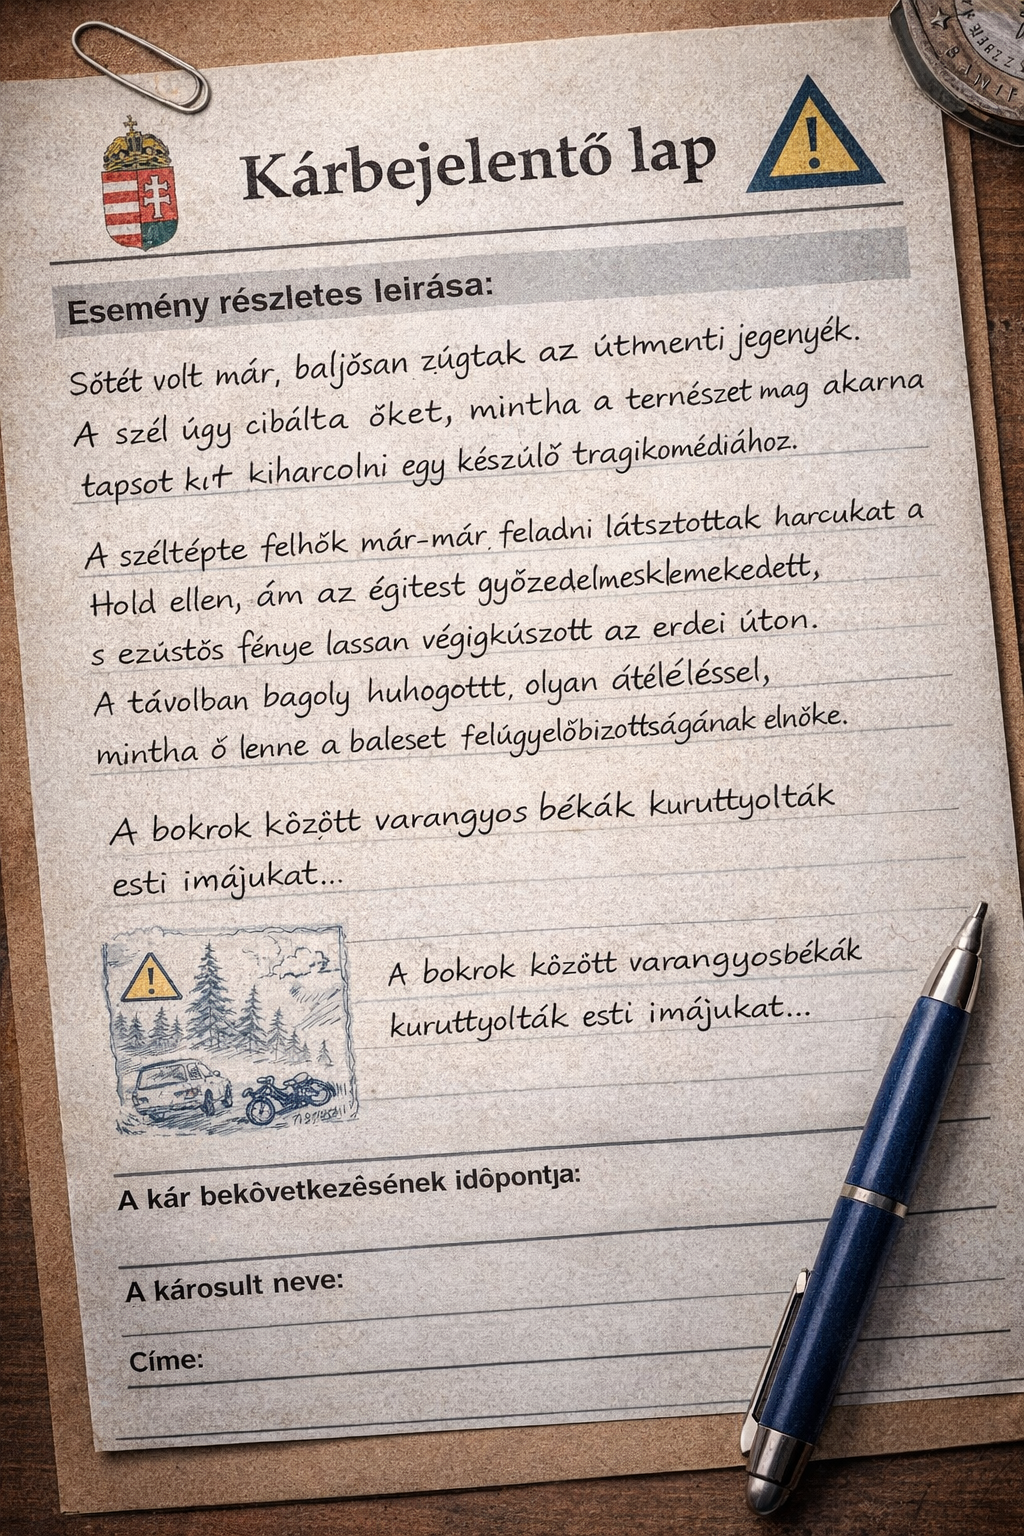 Kárbejelentő lap
Esemény részletes leirása:
Sőtét volt már, baljősan zúgtak az útmenti jegenyék.
A szél úgy cibálta őket, mintha a ternészet mag akarna
tapsot kiharcolni egy készúlő tragikomédiához.
A széltépte felhők már-már feladni látsztottak harcukat a
Hold ellen, ám az égitest győzedelmesklemekedett,
s ezústős fénye lassan végigkúszott az erdei úton.
A távolban bagoly huhogottt, olyan átéléléssel,
mintha ő lenne a baleset felúgyelőbizottságának elnőke.
A bokrok kőzőtt varangyos békák kuruttyolták
esti imájukat...
A bokrok kőzőtt varangyosbékák
kuruttyolták esti imájukat...
A kár bekôvetkezêsének idôpontja:
A károsult neve:
Címe: